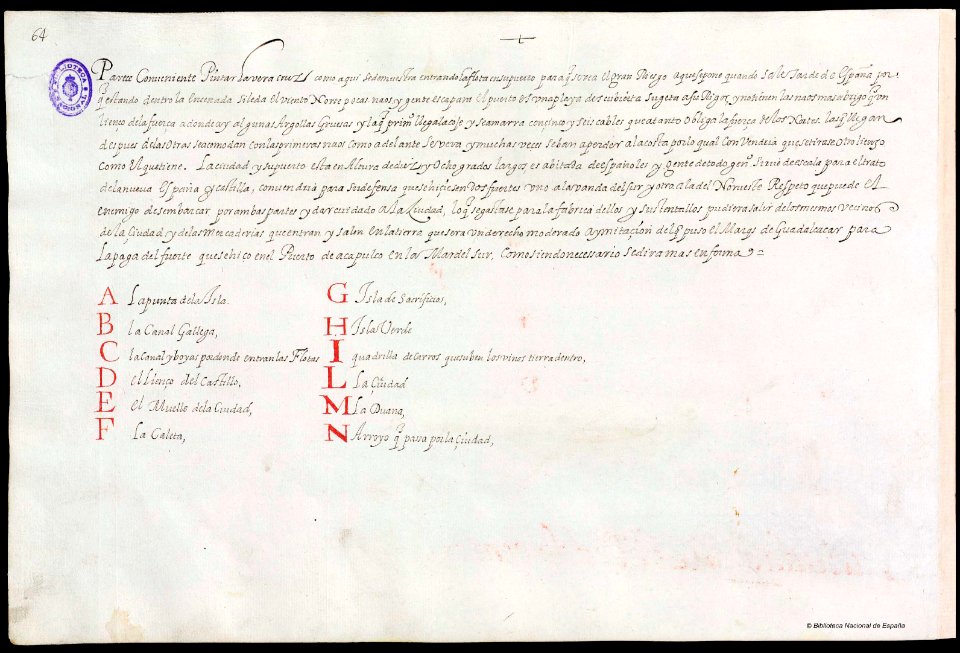 64
Pareçe Conueniente Pintar la vera cruz como aqui se demuestra entrando la flota en su puerto para q̃ se vea el gran Riesgo a que se pone quando sale tarde de españa por
q̃ estando dentro la ensenada si le da el viento Norte pocas naos y gente escapan. El puerto es vna playa descubierta sugeta a su Rigor y no tienen las naos mas abrigo q̃ vn
lienço de la fuerça a donde ay algunas Argollas gruesas y la q̃ prim.º llega la coje y se amarra con çinco y seis cables que a tanto obliga la fuerça de los Nortes. las q̃ llegan
despues de las otras se acomodan con las primeras naos como adelante se vera, y muchas veces se ban a perder a la costa por lo qual conVendria que se tirase otro lienço
como el que tiene. La ciudad y su puerto esta en Altura de diez y ocho grados largos es abitada de españoles y gente de todo gen.º sirue de escala para el trato
de la nueua españa y castilla, convendria para su defensa que se hiçiesen dos fuertes vno a la vanda del sur y otro a la del Norueste Respeto que puede el
enemigo desembarcar por ambas partes y dar cuidado a la Ciudad, lo q̃ se gastase para la fabrica dellos y sustentallos pudiera salir de los mesmos veçinos
de la Ciudad y de las mercaderias que entran y salen en la tierra que sera vn derecho moderado a ymitaçion del q̃ puso el Marqs de Guadalcaçar para
la paga del fuerte que se hiço en el Puerto de acapulco en los Mar del Sur. Como siendo necessario se dira mas en forma
A La punta de la Isla.
B la Canal Gallega,
C la Canal y boyas por donde entran las Flotas
D el lienço del Castillo,
E el Muelle de la Ciudad,
F La Caleta,
G Isla de Sacrifiçios,
H Isla Verde
I quadrilla de Carros que suben los vinos tierra dentro,
L La Çiudad
M La Duana,
N Arroyo q̃ pasa por la Çiudad,
© Biblioteca Nacional de España